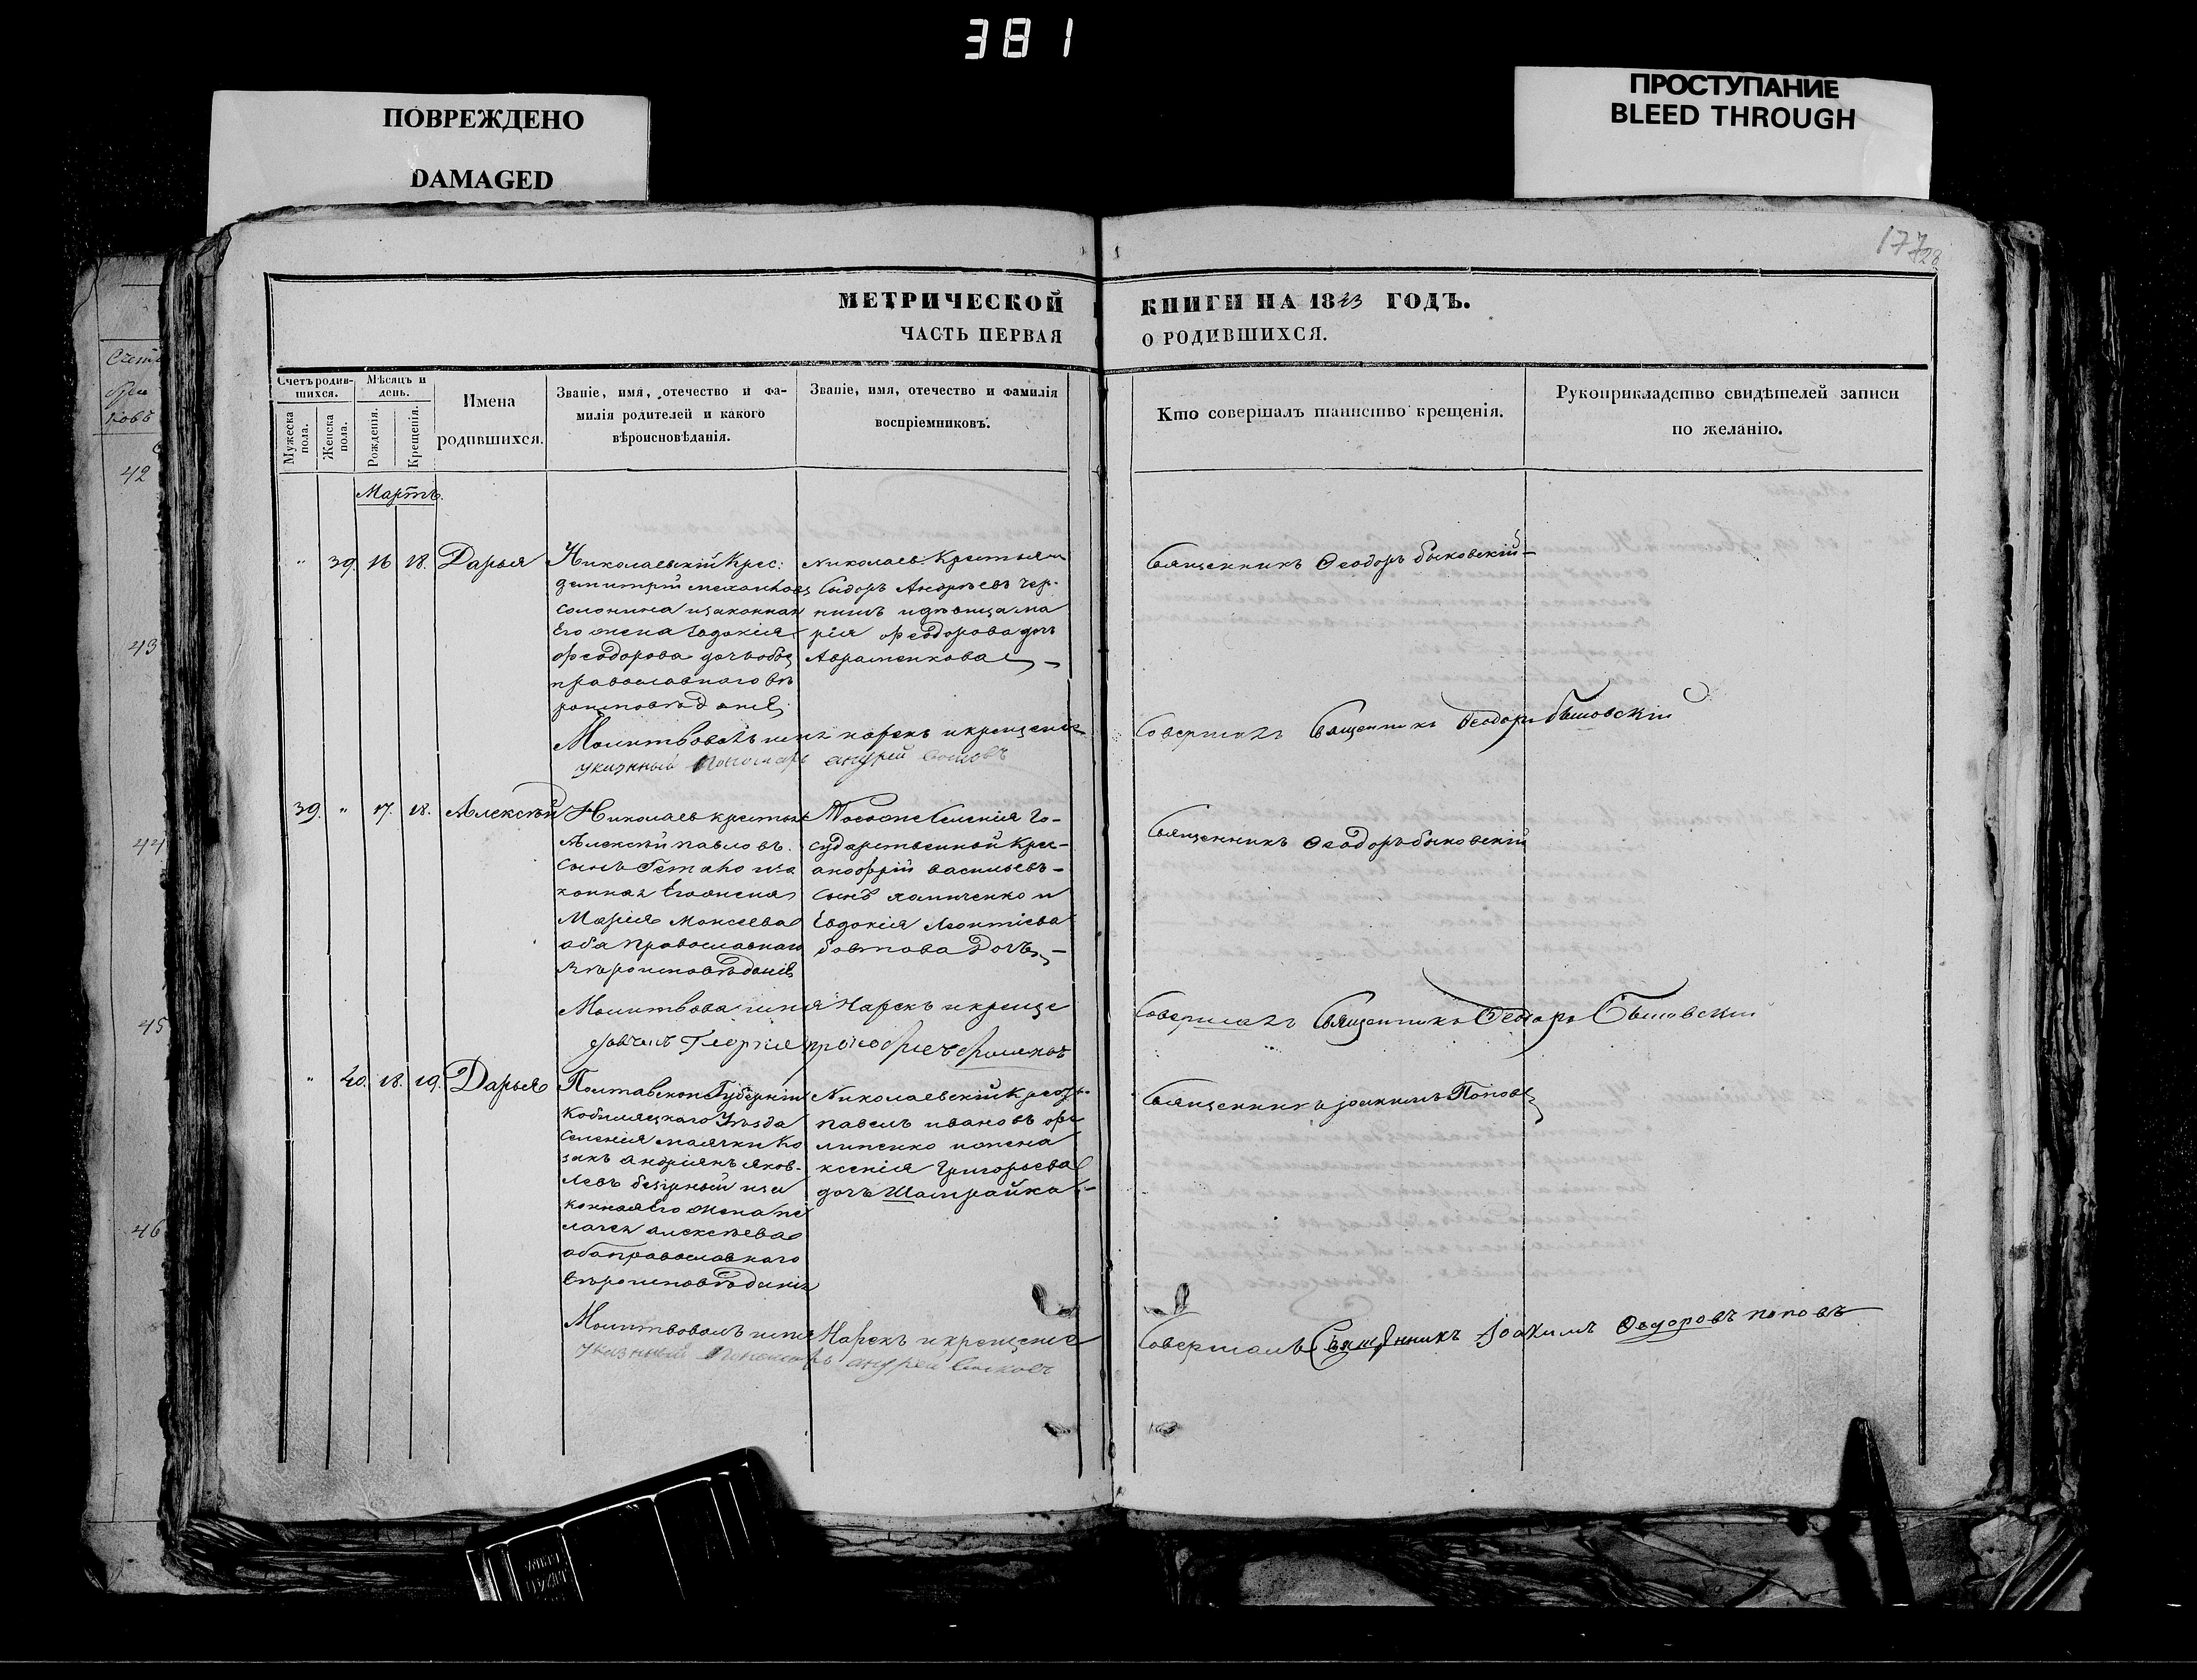 381
ПОВРЕЖДЕНО
DAMAGED
ПРОСТУПАНИЕ
BLEED THROUGH
177
МЕТРИЧЕСКОЙ КНИГИ НА 1843 ГОДЪ.
ЧАСТЬ ПЕРВАЯ О РОДИВШИХСЯ.
Счетъ родив-
шихся.
Мужеска
пола.
Женска
пола.
Мѣсяцъ и
день.
Рожденія.
Крещенія.
Имена
родившихся.
Званіе, имя, отечество и фа-
милія родителей и какого
вѣроисповѣданія.
Званіе, имя, отечество и фамилія
воспріемниковъ.
Кто совершалъ таинство крещенія.
Рукоприкладство свидѣтелей записи
по желанію.
Мартъ
" 39. 16 18. Дарья
Николаевскій Крес:
димитрій
солонина изаконная
Его жена Евдокія
феодорова дочь обоя
православнаго вѣ
роисповѣданія
Николаев. Крестьян
Сидоръ Андрѣевъ чер-
нишъ идѣвица ма
рія феодорова дочь
Авраменкова
Священникъ Ѳеодоръ быковскій
Молитвовалъ имя нарекъ икрещеніе
совершалъ Священникъ Ѳеодоръ
указный Пономарь андрей
39. " 17. 18. Алексѣй
Николаев крестьян
Алексѣй павловъ
сынъ иза
конная Егожена
Марія Моисеева
оба православнаго
Вѣроисповѣданія
Тогоже Селенія Го-
сударственной Крес-
анофрій васильевъ
сынъ и
Евдокія Леонтіева
дочь
Священникъ Ѳеодоръ быковскій
Молитвова имя Нарекъ икреще
Совершалъ Священникъ Ѳеодоръ
" 40. 18. 19. Дарья
Полтавской Губерніи
Кобиляцкаго Уѣзда
Селенія маячки ко
закъ андріянъ яков-
левъ иза
конная Его Жена пе
лагея алексѣева
оба православнаго
Вѣроисповѣданія
Николаевскій
павелъ ивановъ фи
липенко ижена
ксенія Григорьева
дочь Шатрайка
Священникъ Іоакимъ Поповъ
Молитвовалъ имя Нарекъ икрещеніе
Совершалъ Священникъ Іоакимъ Ѳедоровъ поповъ
указный Пономарь андрей
42
43
44
45
46